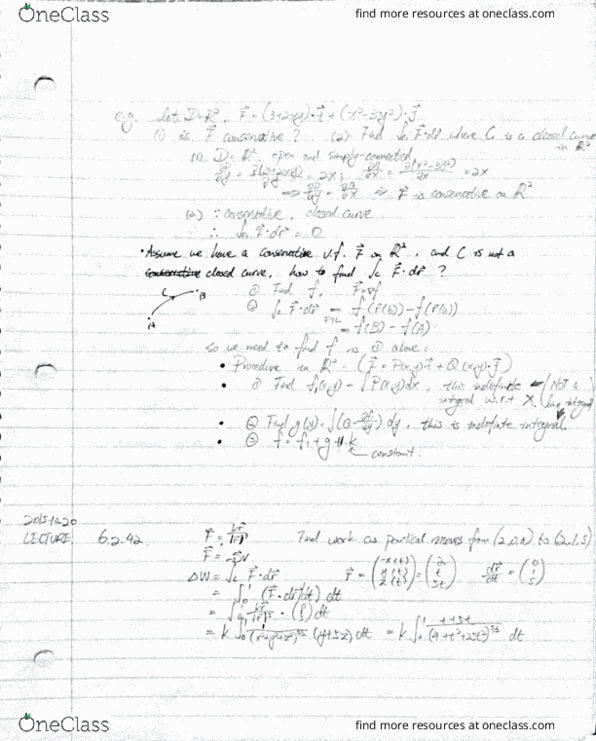 OneClass
find more resources at oneclass.com
e.g. let D=R², F = (3+2xy)·i + (x²-3y²)·j
(1) is F conservative? (2) Find ∫c F·dr where C is a closed curve in R²
(1) D = R² open and simply-connected
= 2x; = 2x
⇒ ∂P/∂y = ∂Q/∂x ⇒ F is conservative on R²
(2) ∵ conservative, closed curve
∴ ∫c F·dr = 0
• Assume we have a conservative v.f. F on R², and C is not a
closed curve, how to find ∫c F·dr ?
① Find f, F=∇f
② ∫c F·dr = f(r(b)) - f(r(a))
FTL
= f(B) - f(A)
C
B
A
so we need to find f as ① above:
• Procedure in R² · (F = P(x,y)·i + Q(x,y)·j)
• ① Find f₁(x,y) = ∫P(x,y)dx, this indefinite ← (Not a
integral w.r.t X. line integral)
• ② Find g(y) = ∫(Q - ∂f₁/∂y) dy, this is indefinite integral.
• ③ f = f₁ + g + k
constant.
2015.10.20
LECTURE 6.2.42 Find work as particle moves from (2,0,0) to (2,1,5)
ΔW = ∫c F·dr
r = (x(t) y(t) z(t)) = (2 t 5t) dr/dt = (0 1 5)
= ∫₀¹ (F·dr/dt) dt
= k ∫₀¹ 1/(x²+y²+z²)^3/2 (y+5z) dt
OneClass
find more resources at oneclass.com